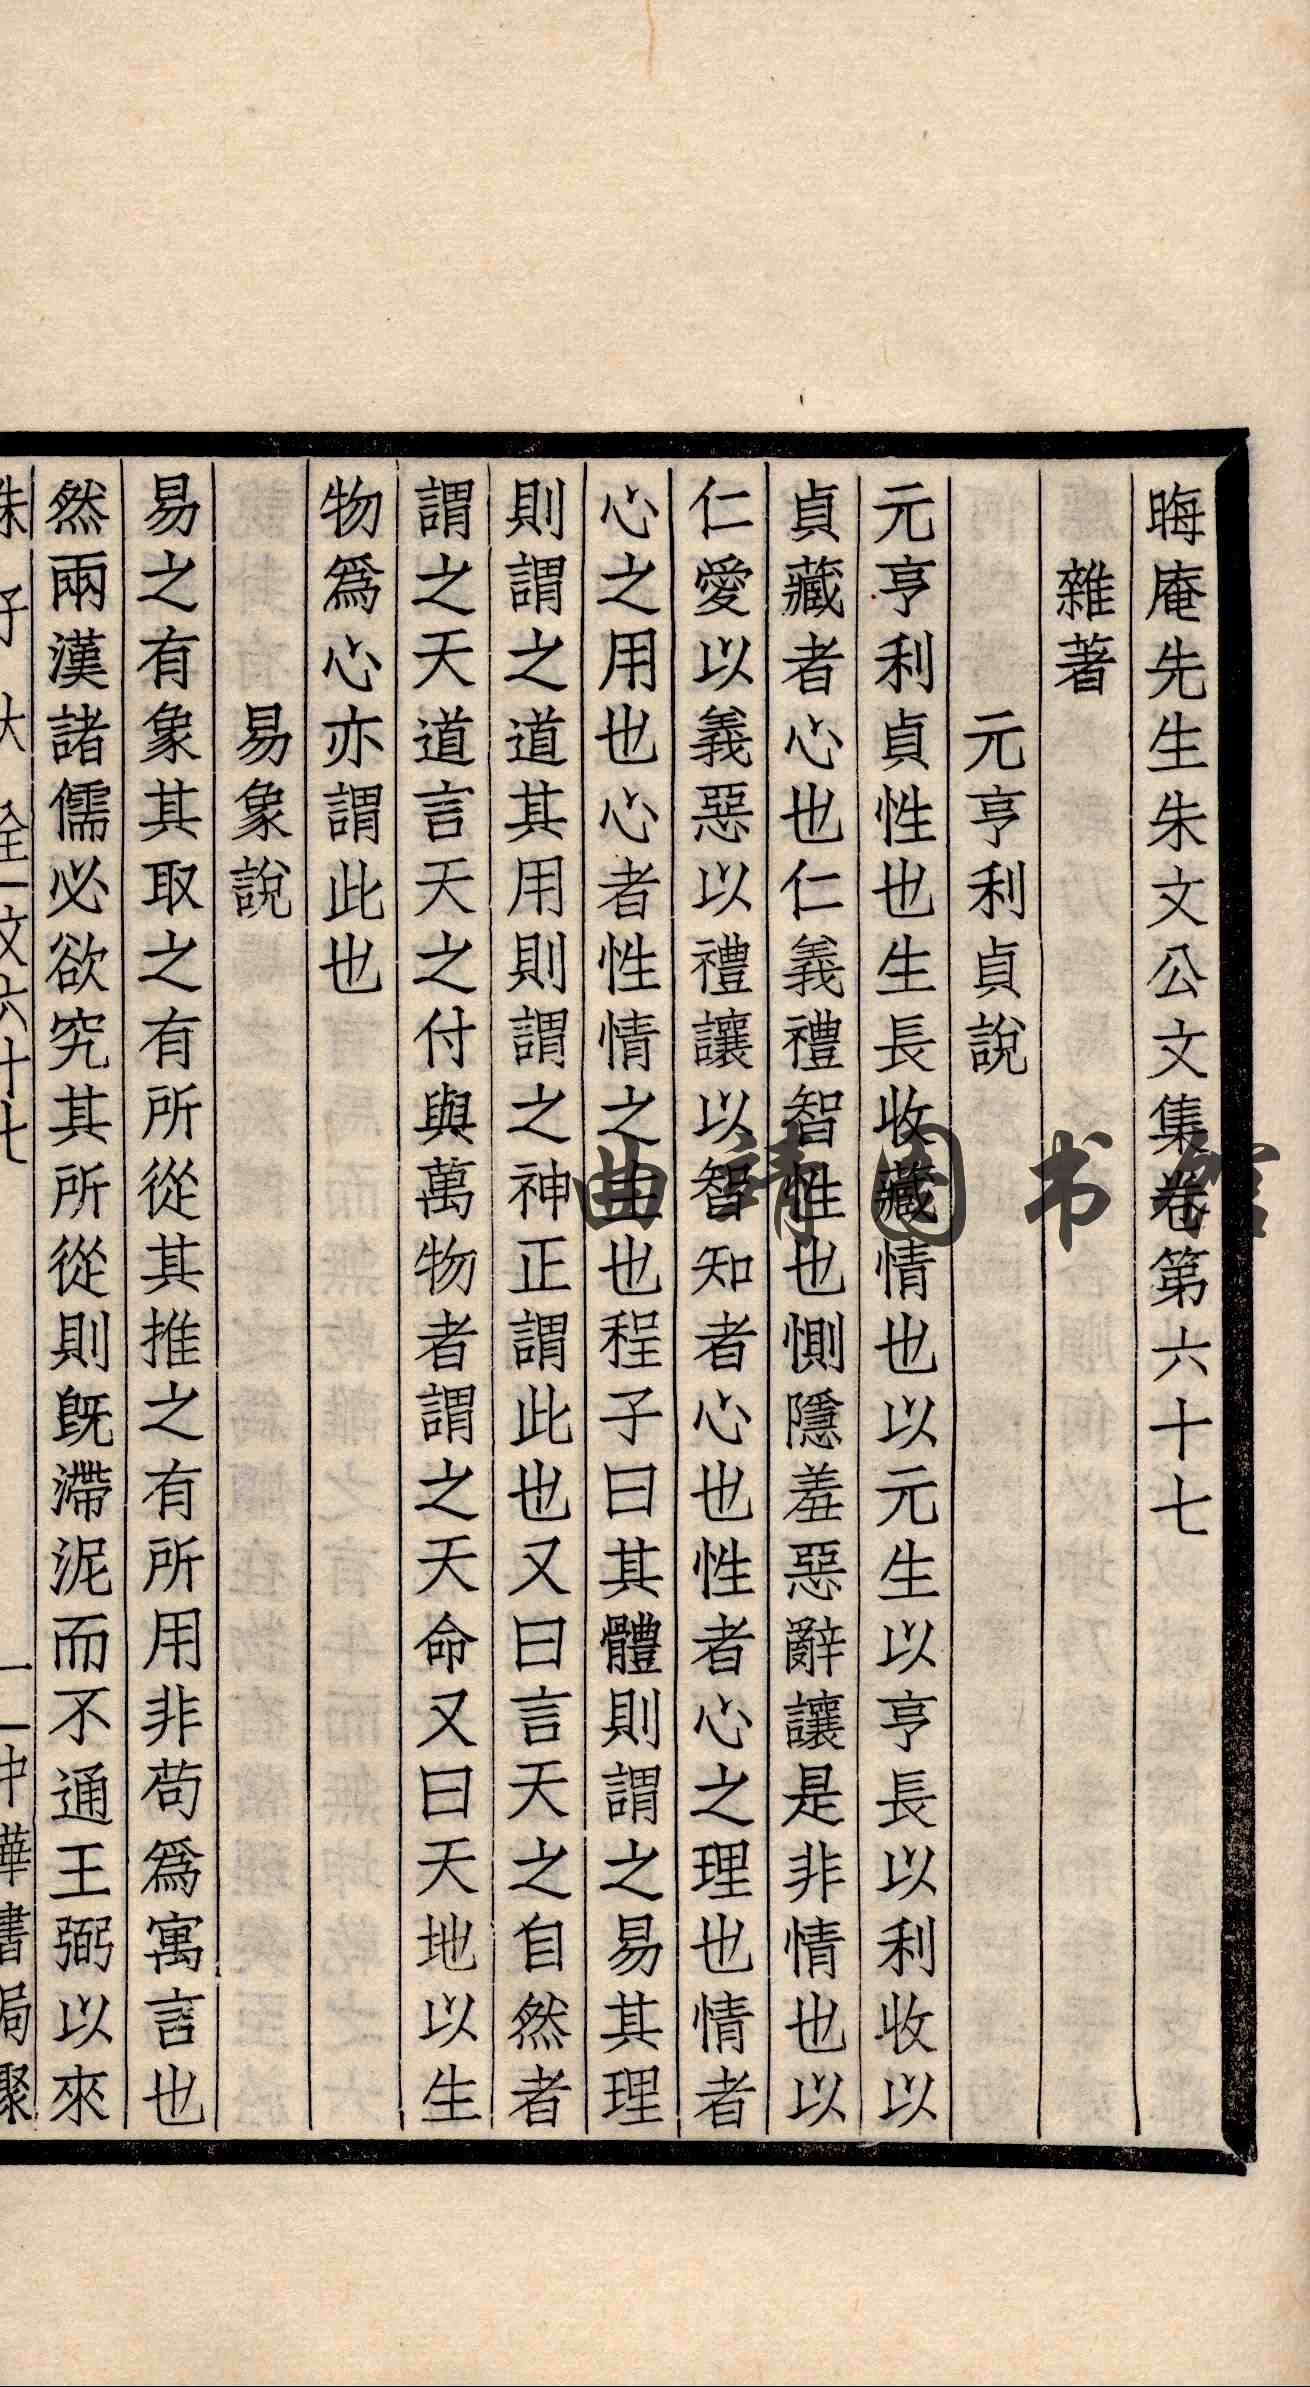 晦庵先生朱文公文集卷第六十七
雜著
元亨利貞說
元亨利貞性也生長收藏情也以元生以亨長以利收以
貞藏者心也仁義禮智性也惻隱羞惡辭讓是非情也以
仁愛以義惡以禮讓以智知者心也性者心之理也情者
心之用也心者性情之主也程子曰其體則謂之易其理
則謂之道其用則謂之神正謂此也又曰言天之自然者
謂之天道言天之付與萬物者謂之天命又曰天地以生
物爲心亦謂此也
易象說
易之有象其取之有所從其推之有所用非苟爲寓言也
然兩漢諸儒必欲究其所從則旣滯泥而不通王弼以來
朱子大全 文六十七
一 中華書局聚
曲靖图书馆